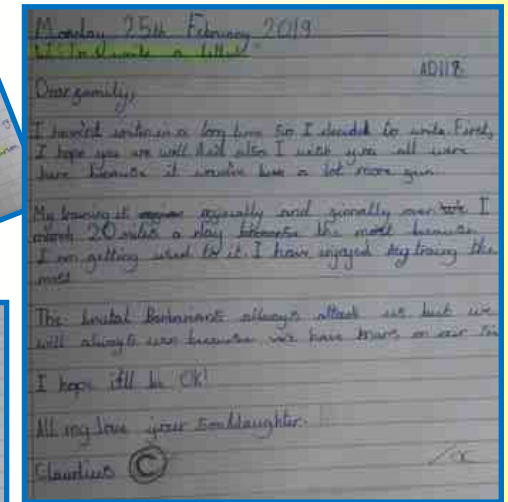 Monday 25th February 2019
WILF: write a letter
AD118
Dear family,
I haven't written in a long time so I decided to write. First,
I hope you are well. And also I wish you all were
here because it would be a lot more fun.
My training is officially and finally over. I
march 20 miles a day the most because
I am getting used to it. I have enjoyed my training the
most
The brutal Barbarians always attack us but we
will always win because we have Mars on our
I hope it'll be OK!
All my love your Son/daughter.
Claudius C